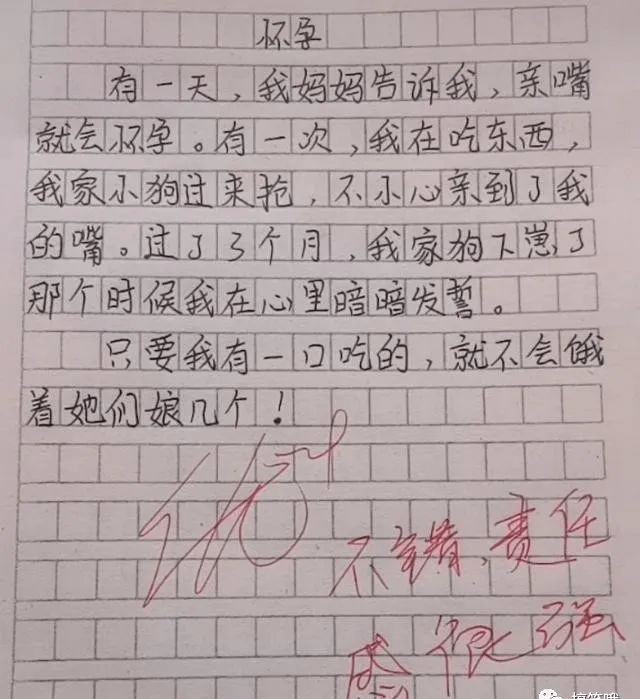 怀孕
有一天，我妈妈告诉我，亲嘴
就会怀孕。有一次，我在吃东西，
我家小狗过来抢，不小心亲到了我
的嘴。过了3个月，我家狗下崽了
那个时候我在心里暗暗发誓。
只要我有一口吃的，就不会饿
着她们娘几个！
不错，责任
感很强
搞笑哦